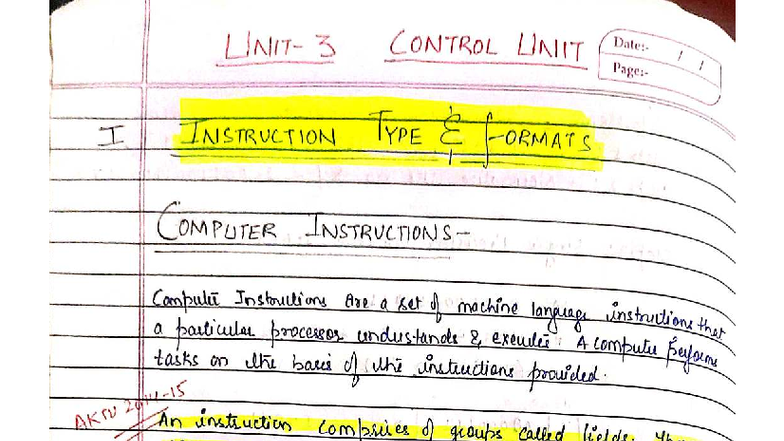 UNIT-3 CONTROL UNIT
Date:- / /
Page:-
I INSTRUCTION TYPE & FORMATS
COMPUTER INSTRUCTIONS-
Computer Instructions are a set of machine language instructions that
a particular processor understands & executes. A computer performs
tasks on the basis of the instructions provided.
AKTU 2014-15
An instruction comprises of groups called fields.